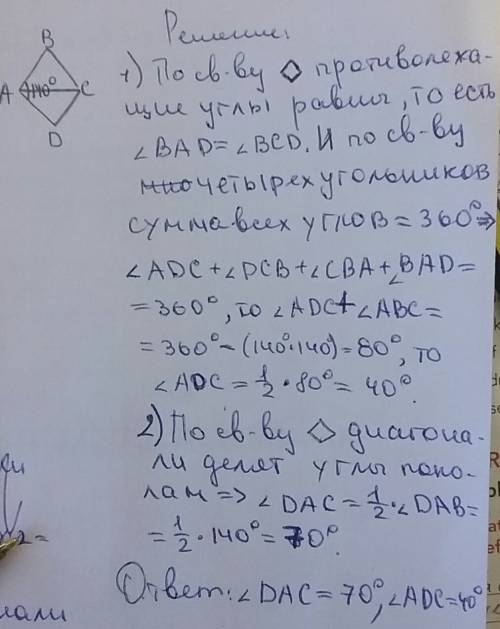 Решение:
B
A 140° C
D
1) По св-ву ◇ противолежа-
щие углы равны, то есть
∠BAD=∠BCD. И по св-ву
четырехугольников
сумма всех углов = 360° ⇒
∠ADC+∠DCB+∠CBA+∠BAD=
=360°, то ∠ADC+∠ABC=
=360°-(140°·140)=80°, то
∠ADC=1/2·80°=40°.
2) По св-ву ◇ диагона-
ли делят углы попо-
лам => ∠DAC=1/2·∠DAB=
=1/2·140°=70°.
Ответ: ∠DAC=70°, ∠ADC=40°